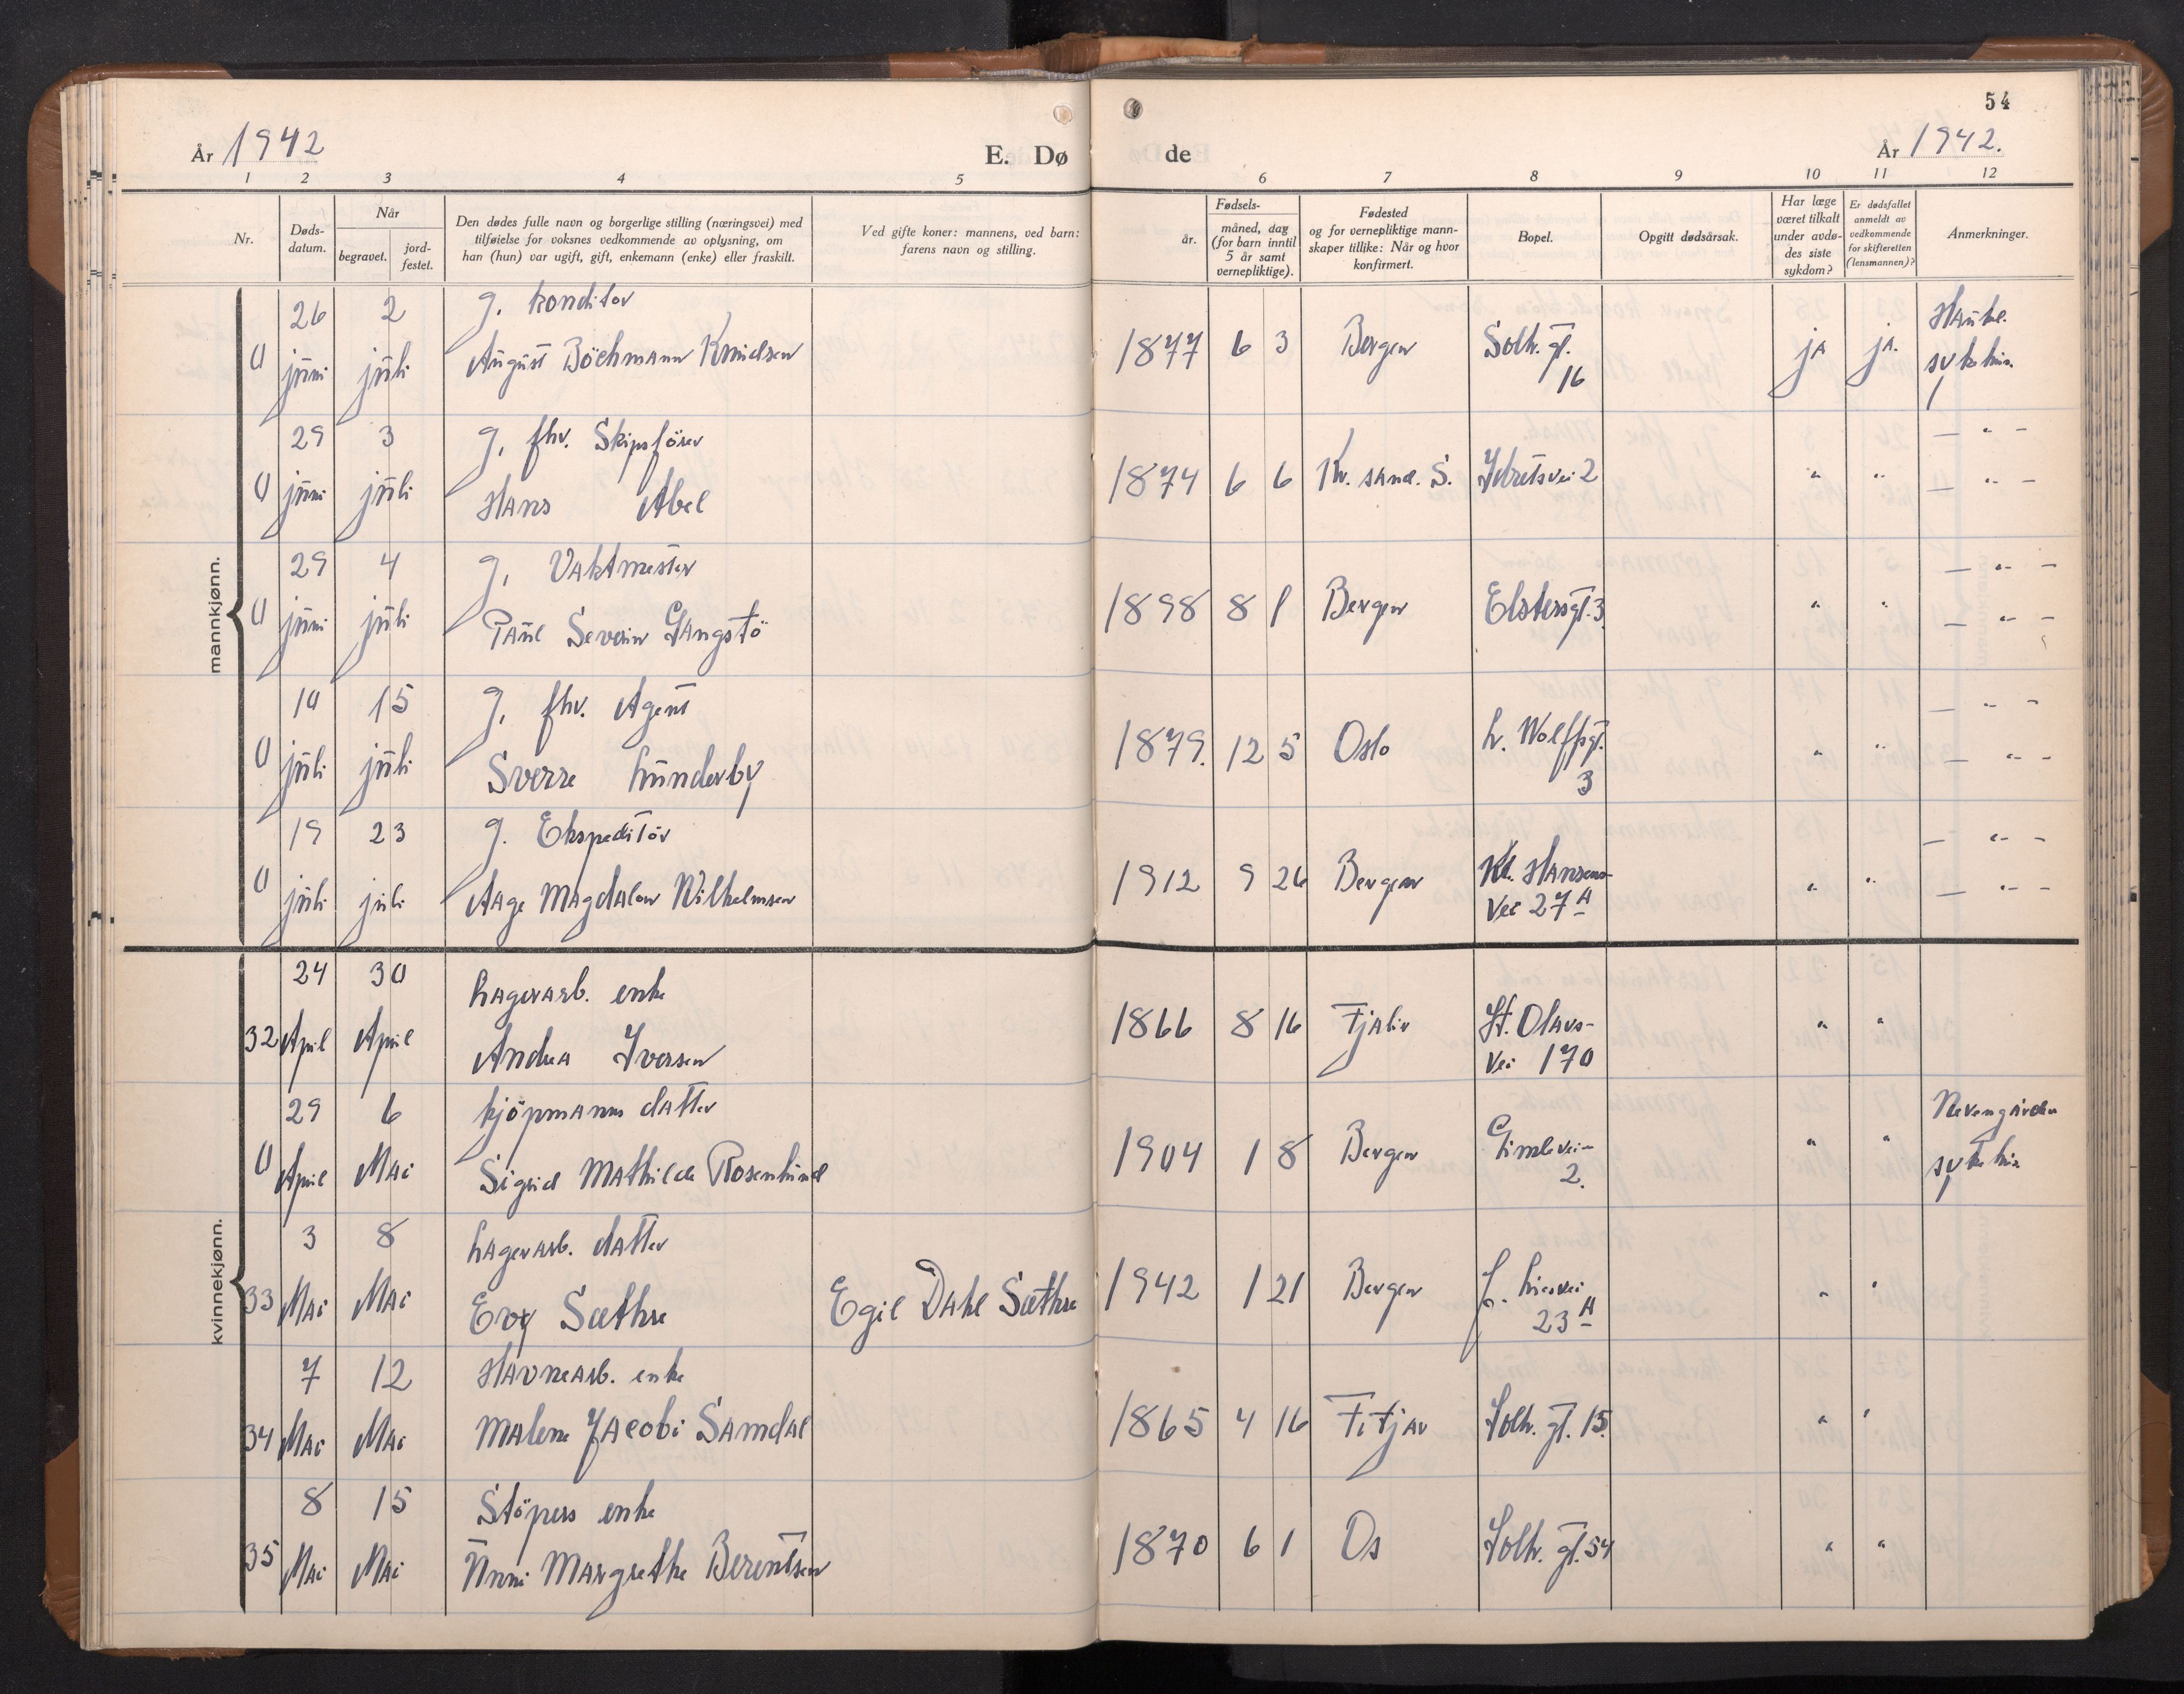 54
År 1942
E. Dø
de
År 1942.
1 2 3 4 5 6 7 8 9 10 11 12
Nr.
Døds-
datum.
Når
begravet.
jord-
festet.
Den dødes fulle navn og borgerlige stilling (næringsvei) med
tilføielse for voksnes vedkommende av oplysning, om
han (hun) var ugift, gift, enkemann (enke) eller fraskilt.
Ved gifte koner: mannens, ved barn:
farens navn og stilling.
Fødsels-
år.
måned, dag
(for barn inntil
5 år samt
vernepliktige).
Fødested
og for vernepliktige mann-
skaper tillike: Når og hvor
konfirmert.
Bopel.
Opgitt dødsårsak.
Har læge
været tilkalt
under avdø-
des siste
sykdom?
Er dødsfallet
anmeldt av
vedkommende
for skifteretten
(lensmannen)?
Anmerkninger.
mannkjønn.
26 2 g. konditor
0 juni juli August Böchmann Knudsen
1877 6 3 Bergen Solh. gt. 16 ja ja. Hauke. sykehus.
29 3 g. fhv. Skipsförer
0 juni juli Hans Abel
1874 6 6 Kr. sand. S. Idretsvei 2 " " — " —
— " —
29 4 g. Vaktmester
0 juni juli Paul Severin Langstö
1898 8 1 Bergen Elstersgt. 3. " " — " —
— " —
10 15 g. fhv. Agent
0 juli juli Sverre Lunderby
1879. 12 5 Oslo L. Wolffsgt. 3 " " — " —
— " —
19 23 g. Ekspeditör
0 juli juli Aage Magdalon Wilhelmsen
1912 9 26 Bergen Kl. Hansens-
vei 27 A " " — " —
— " —
kvinnekjønn.
24 30 Lagerarb. enke
32 April April Andrea Iversen
1866 8 16 Fjaler St. Olavs-
vei 170 " "
29 6 kjöpmanns datter
0 April Mai Sigrid Mathilde Rosenlund
1904 1 8 Bergen Gimlevei-
2. " " Nevengården
sykehus
3 8 Lagerarb. datter
33 Mai Mai Evy Sæthre Egil Dahl Sæthre
1942 1 21 Bergen f. Liesvei
23 A " "
7 12 Havnearb. enke
34 Mai Mai Malene Jacobi Samdal
1865 4 16 Fitjar Solh. gt. 15. " "
8 15 Stöpers enke
35 Mai Mai Anni Margrethe Berentsen
1870 6 1 Os Solh. gt. 54 " "